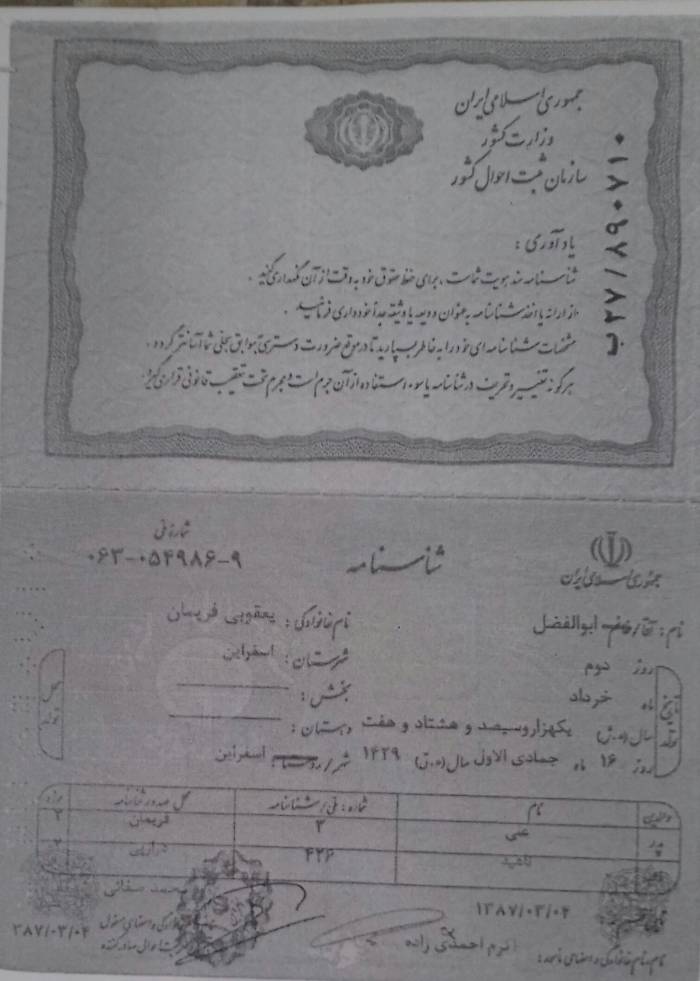 جمهوری اسلامی ایران
وزارت کشور
سازمان ثبت احوال کشور
ب۲۷/۸۹۰۷۱۰
یادآوری :
شناسنامه سند هویت شماست ، برای حفظ حقوق خود به دقت از آن نگهداری کنید .
از ارائه یا اخذ شناسنامه به عنوان ودیعه یا وثیقه جداً خودداری فرمائید .
مشخصات شناسنامه ای خود را به خاطر بسپارید تا در موقع ضرورت دسترسی به سوابق سجلی شما آسانتر گردد .
هرگونه تغییر و تحریف در شناسنامه یا سوء استفاده از آن جرم است و مجرم تحت تعقیب قانونی قرار می گیرد .
جمهوری اسلامی ایران
شناسنامه
شماره ملی
۰۶۳-۰۵۴۹۸۶-۹
نام : آقا/خانم ابوالفضل
نام خانوادگی : یعقوبی فریمان
تاریخ تولد
روز دوم
ماه خرداد
سال (ه.ش) یکهزار و سیصد و هشتاد و هفت
روز ۱۶ ماه جمادی الاول سال (ه.ق) ۱۴۲۹
محل تولد
شهرستان : اسفراین
بخش :
دهستان :
شهر/روستا : اسفراین
والدین نام شماره : ملی/شناسنامه محل صدور شناسنامه حوزه
پدر علی ۳ فریمان ۲
ناهید ۴۲۶
۱۳۸۷/۰۳/۰۴
اکرم احمدی زاده
نام،نام خانوادگی و امضای
محمد صفائی